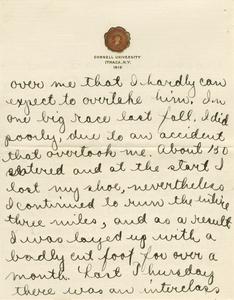 CORNELL UNIVERSITY
ITHACA, N.Y.
over me that I hardly can
expect to overtake him. In
one big race last fall, I did
poorly, due to an accident
that overtook me. About 150
entered and at the start I
lost my shoe, nevertheless
I continued to run the entire
three miles, and as a result
I was layed up with a
badly cut foot for over a
month. Last Thursday
there was an interclass